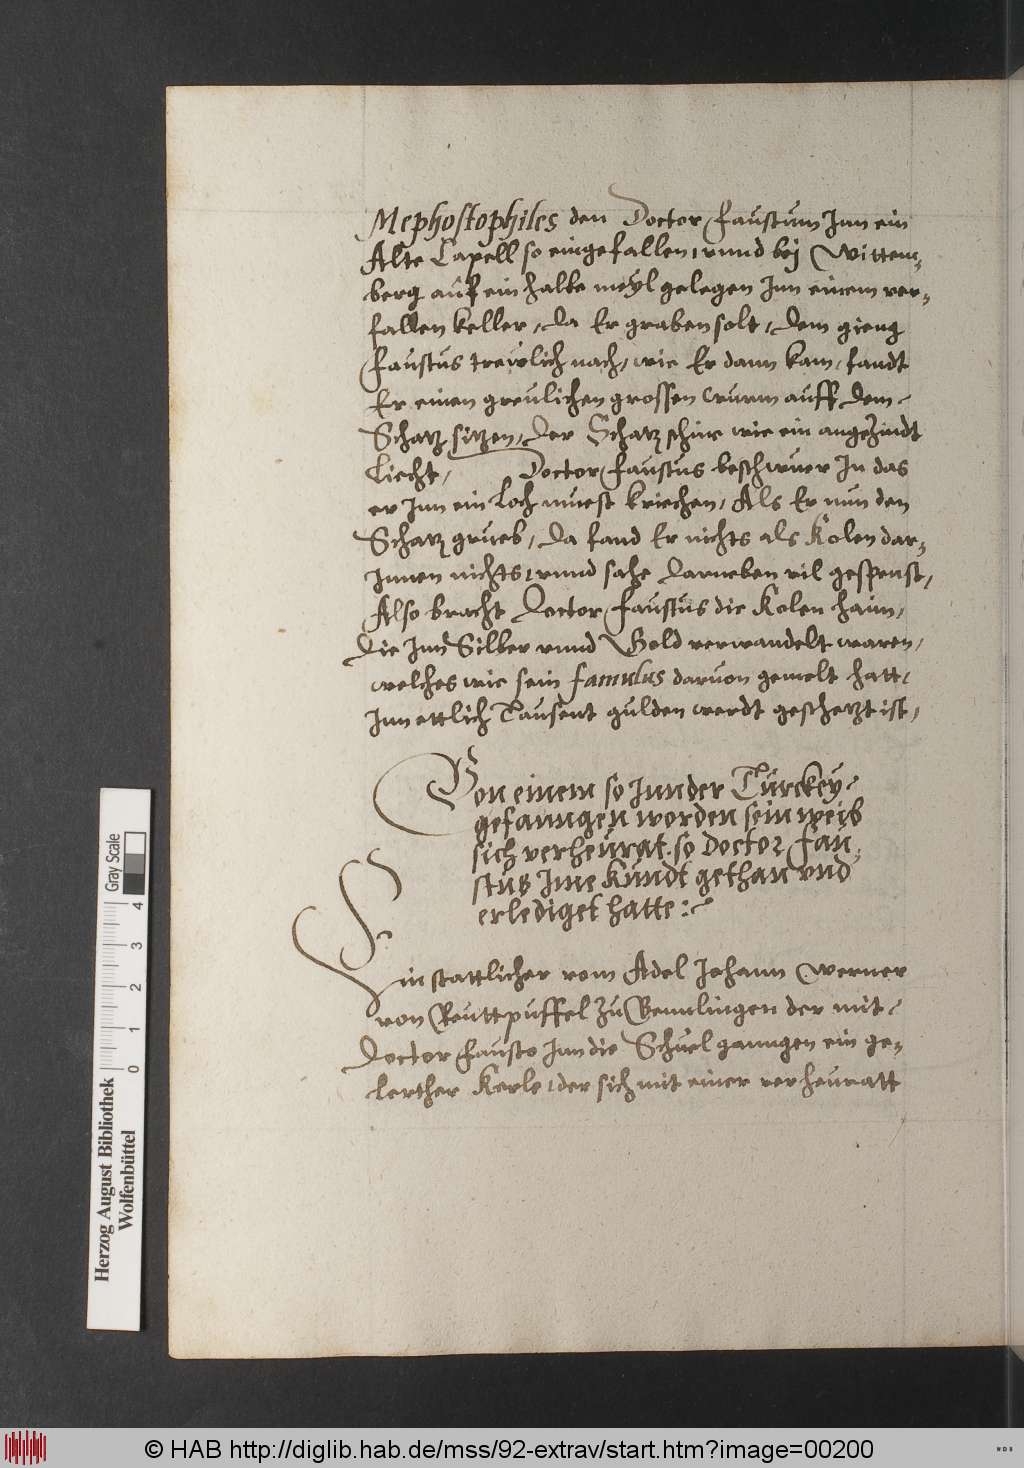 Mephostophiles den Doctor Faustum Inn ein
Alte Capell so eingefallen, vnnd beÿ Wittem-
berg auf ein halbe meÿl gelegen Inn einem ver-
fallen keller, da Er graben solt, dem gieng
Faustus trewlich nach, wie Er dann kam, fandt
Er einen greulichen grossen wurm auff dem
Schatz sitzen, der Schatz schine wie ein angezindt
Liecht, Doctor Faustus beschwuer In das
er Inn ein Loch muest kriechen, Als Er nun den
Schatz grueb, da fand Er nichts als Kolen dar-
Innen nichts, vnnd sahe darneben vil gespenst,
Also bracht Doctor Faustus die Kolen haim,
die Inn Silber vnnd Gold verwandelt waren,
welches wie sein famulus daruon gemelt hatt,
Inn ettlich Tausent gulden werdt geschetzt ist,
Von einem so Inn der Türckeÿ
gefanngen worden sein weib
sich verheürat, so Doctor Fau-
stus Ime Kundt gethan vnd
erlediget hatte :
Ein stattlicher vom Adel Johann Werner
von Reuttpuffel zu Bennlingen der mit
Doctor Fausto Inn die Schuel ganngen ein ge-
lerther Kerle, der sich mit einer verheuratt
Herzog August Bibliothek
Wolfenbüttel
Gray Scale
0 1 2 3 4
© HAB http://diglib.hab.de/mss/92-extrav/start.htm?image=00200
WDB